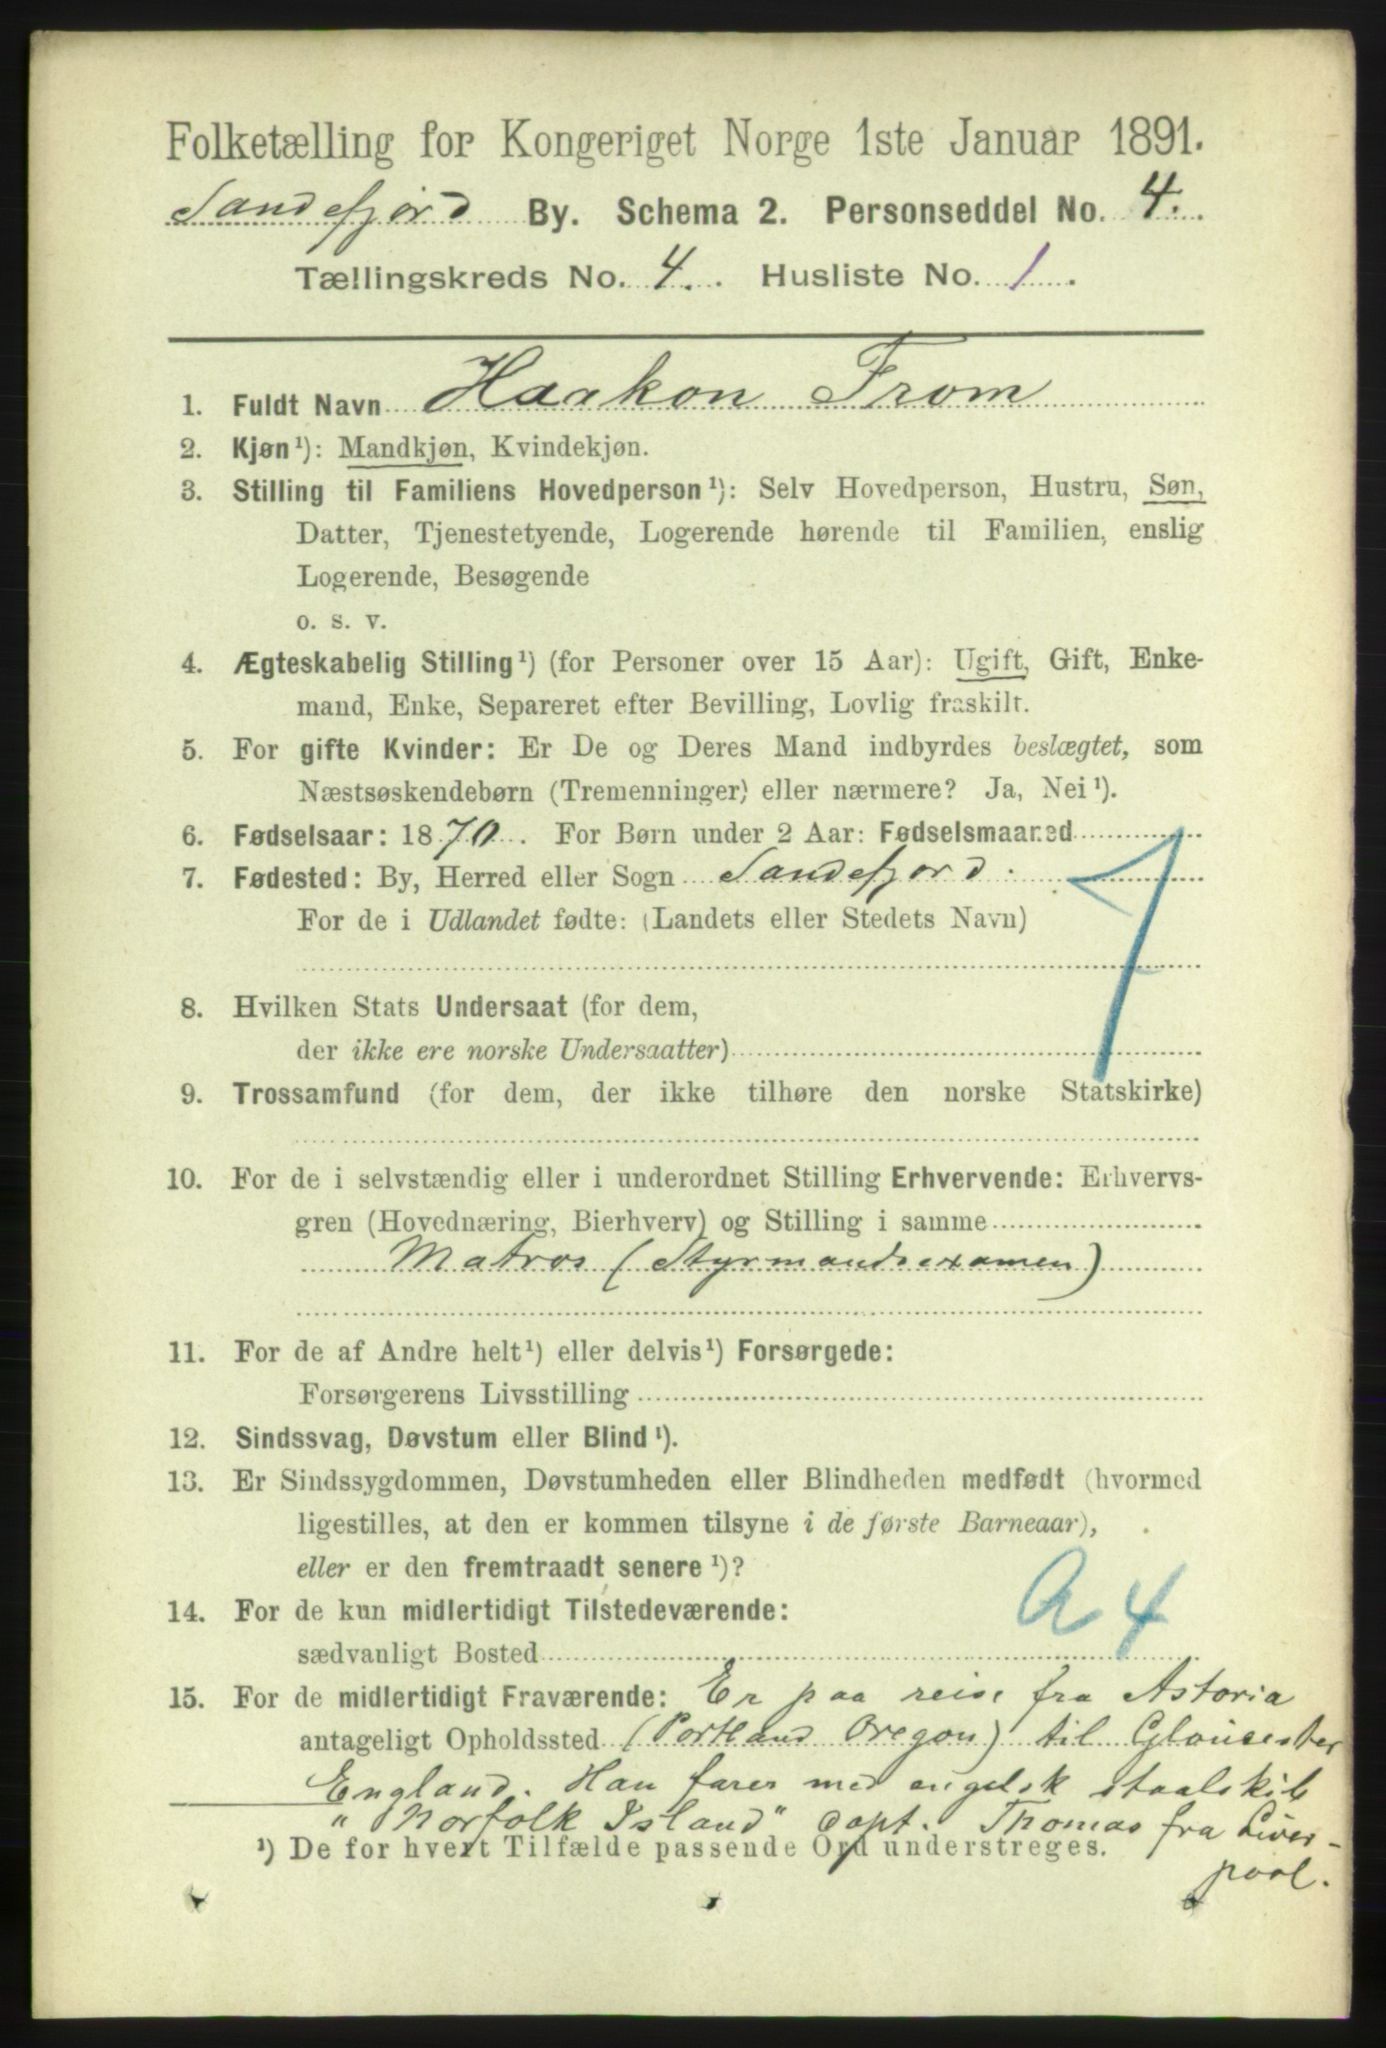 Folketælling for Kongeriget Norge 1ste Januar 1891.
Sandefjord By. Schema 2. Personseddel No. 4.
Tællingskreds No. 4. Husliste No. 1.
1. Fuldt Navn Haakon From
2. Kjøn¹): Mandkjøn, Kvindekjøn.
3. Stilling til Familiens Hovedperson¹): Selv Hovedperson, Hustru, Søn,
Datter, Tjenestetyende, Logerende hørende til Familien, enslig
Logerende, Besøgende
o. s. v.
4. Ægteskabelig Stilling¹) (for Personer over 15 Aar): Ugift, Gift, Enke-
mand, Enke, Separeret efter Bevilling, Lovlig fraskilt.
5. For gifte Kvinder: Er De og Deres Mand indbyrdes beslægtet, som
Næstsøskendebørn (Tremenninger) eller nærmere? Ja, Nei¹).
6. Fødselsaar: 1870. For Børn under 2 Aar: Fødselsmaaned
7. Fødested: By, Herred eller Sogn Sandefjord.
For de i Udlandet fødte: (Landets eller Stedets Navn)
8. Hvilken Stats Undersaat (for dem,
der ikke ere norske Undersaatter)
9. Trossamfund (for dem, der ikke tilhøre den norske Statskirke)
10. For de i selvstændig eller i underordnet Stilling Erhvervende: Erhvervs-
gren (Hovednæring, Bierhverv) og Stilling i samme
Matros (Styrmandsexamen)
11. For de af Andre helt¹) eller delvis¹) Forsørgede:
Forsørgerens Livsstilling
12. Sindssvag, Døvstum eller Blind¹).
13. Er Sindssygdommen, Døvstumheden eller Blindheden medfødt (hvormed
ligestilles, at den er kommen tilsyne i de første Barneaar),
eller er den fremtraadt senere¹)?
A 4
14. For de kun midlertidigt Tilstedeværende:
sædvanligt Bosted
15. For de midlertidigt Fraværende: Er paa reise fra Astoria
antageligt Opholdssted (Portland Oregon) til Glousester
England. Han farer med engelsk staalskib
"Norfolk Island" capt. Thomas fra Liver-
¹) De for hvert Tilfælde passende Ord understreges.
pool.